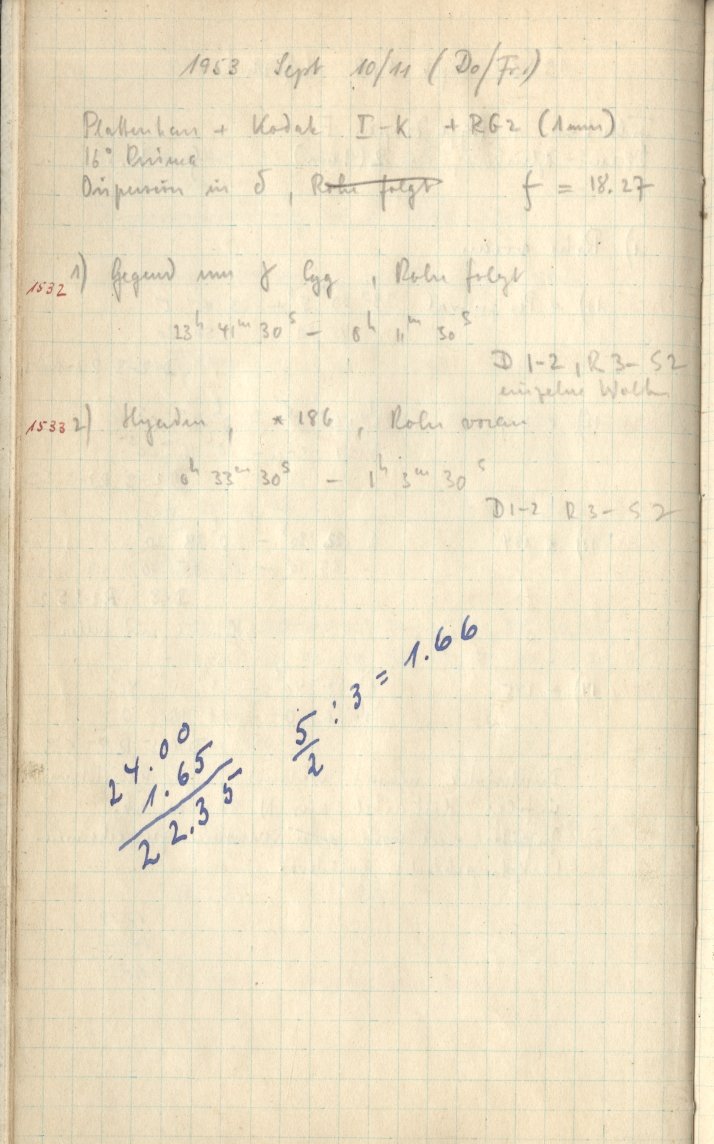 1953 Sept 10/11 (Do/Fr.)
Plattenhau + Kodak I-K + RG2 (1mm)
16° Prisma
Dispersion in δ, Rohr folgt f = 18.27
1532 1) Gegend um γ Cyg, Rohr folgt
23h 41m 30s - 0h 11m 30s
D 1-2, R 3- S2
einzelne Wolken
1533 2) Hyaden, * 186, Rohr voran
0h 33m 30s - 1h 3m 30s
D1-2 R3- S2
5/2 : 3 = 1.66
24.00
1.65
22.35